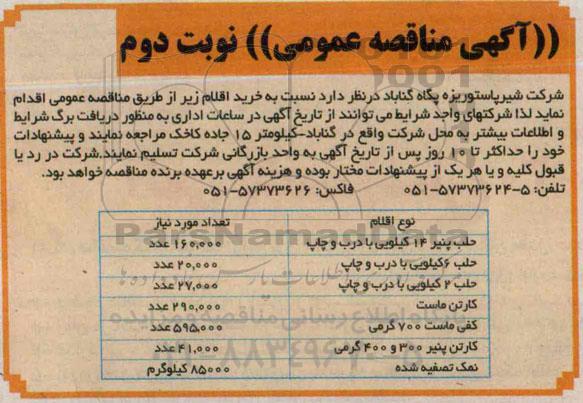 ((آگهی مناقصه عمومی)) نوبت دوم
شرکت شیرپاستوریزه پگاه گناباد درنظر دارد نسبت به خرید اقلام زیر از طریق مناقصه عمومی اقدام
نماید لذا شرکتهای واجد شرایط می توانند از تاریخ آگهی در ساعات اداری به منظور دریافت برگ شرایط
و اطلاعات بیشتر به محل شرکت واقع در گناباد-کیلومتر ۱۵ جاده کاخک مراجعه نمایند و پیشنهادات
خود را حداکثر تا ۱۰ روز پس از تاریخ آگهی به واحد بازرگانی شرکت تسلیم نمایند.شرکت در رد یا
قبول کلیه و یا هر یک از پیشنهادات مختار بوده و هزینه آگهی برعهده برنده مناقصه خواهد بود.
تلفن: ۵-۵۷۳۷۳۶۲۴-۰۵۱ فاکس: ۵۷۳۷۳۶۲۶-۰۵۱
نوع اقلام تعداد مورد نیاز
حلب پنیر ۱۴ کیلویی با درب و چاپ ۱۶۰,۰۰۰ عدد
حلب ۶کیلویی با درب و چاپ ۲۰,۰۰۰ عدد
حلب ۲ کیلویی با درب و چاپ ۲۷,۰۰۰ عدد
کارتن ماست ۲۹۰,۰۰۰ عدد
کفی ماست ۷۰۰ گرمی ۵۹۵,۰۰۰ عدد
کارتن پنیر ۳۰۰ و ۴۰۰ گرمی ۴۱,۰۰۰ عدد
نمک تصفیه شده ۸۵۰۰۰ کیلوگرم